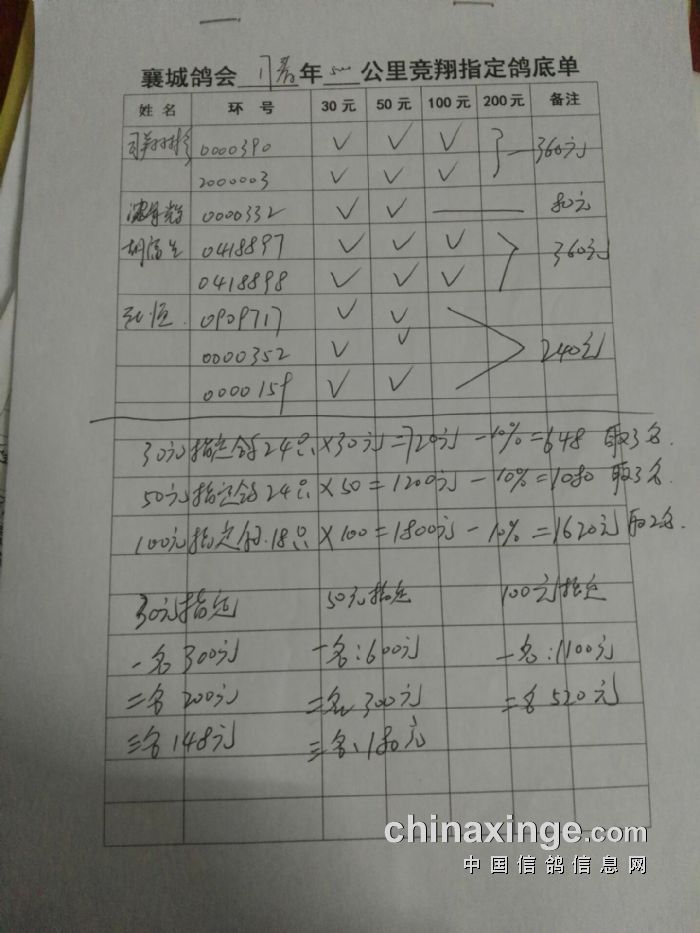 襄城鸽会 年 500 公里竞翔指定鸽底单
姓名 环号 30元 50元 100元 200元 备注
0000390 ✓ ✓ ✓ 360元
2000003 ✓ ✓ ✓
0000332 ✓ ✓ 80元
胡 0418897 ✓ ✓ ✓ 360元
0418898 ✓ ✓ ✓
0909717 ✓ ✓
0000352 ✓ ✓ 240元
0000159 ✓ ✓
30元指定鸽24只×30元=720元-10%=648 取3名.
50元指定鸽24只×50=1200元-10%=1080 取3名.
100元指定鸽.18只×100=1800元-10%=1620元 取2名.
30元指定 50元指定 100元指定
一名300元 一名:600元 一名:1100元
二名200元 二名300元 二名520元
三名148元 三名:180元
chinaxinge.com
中国信鸽信息网